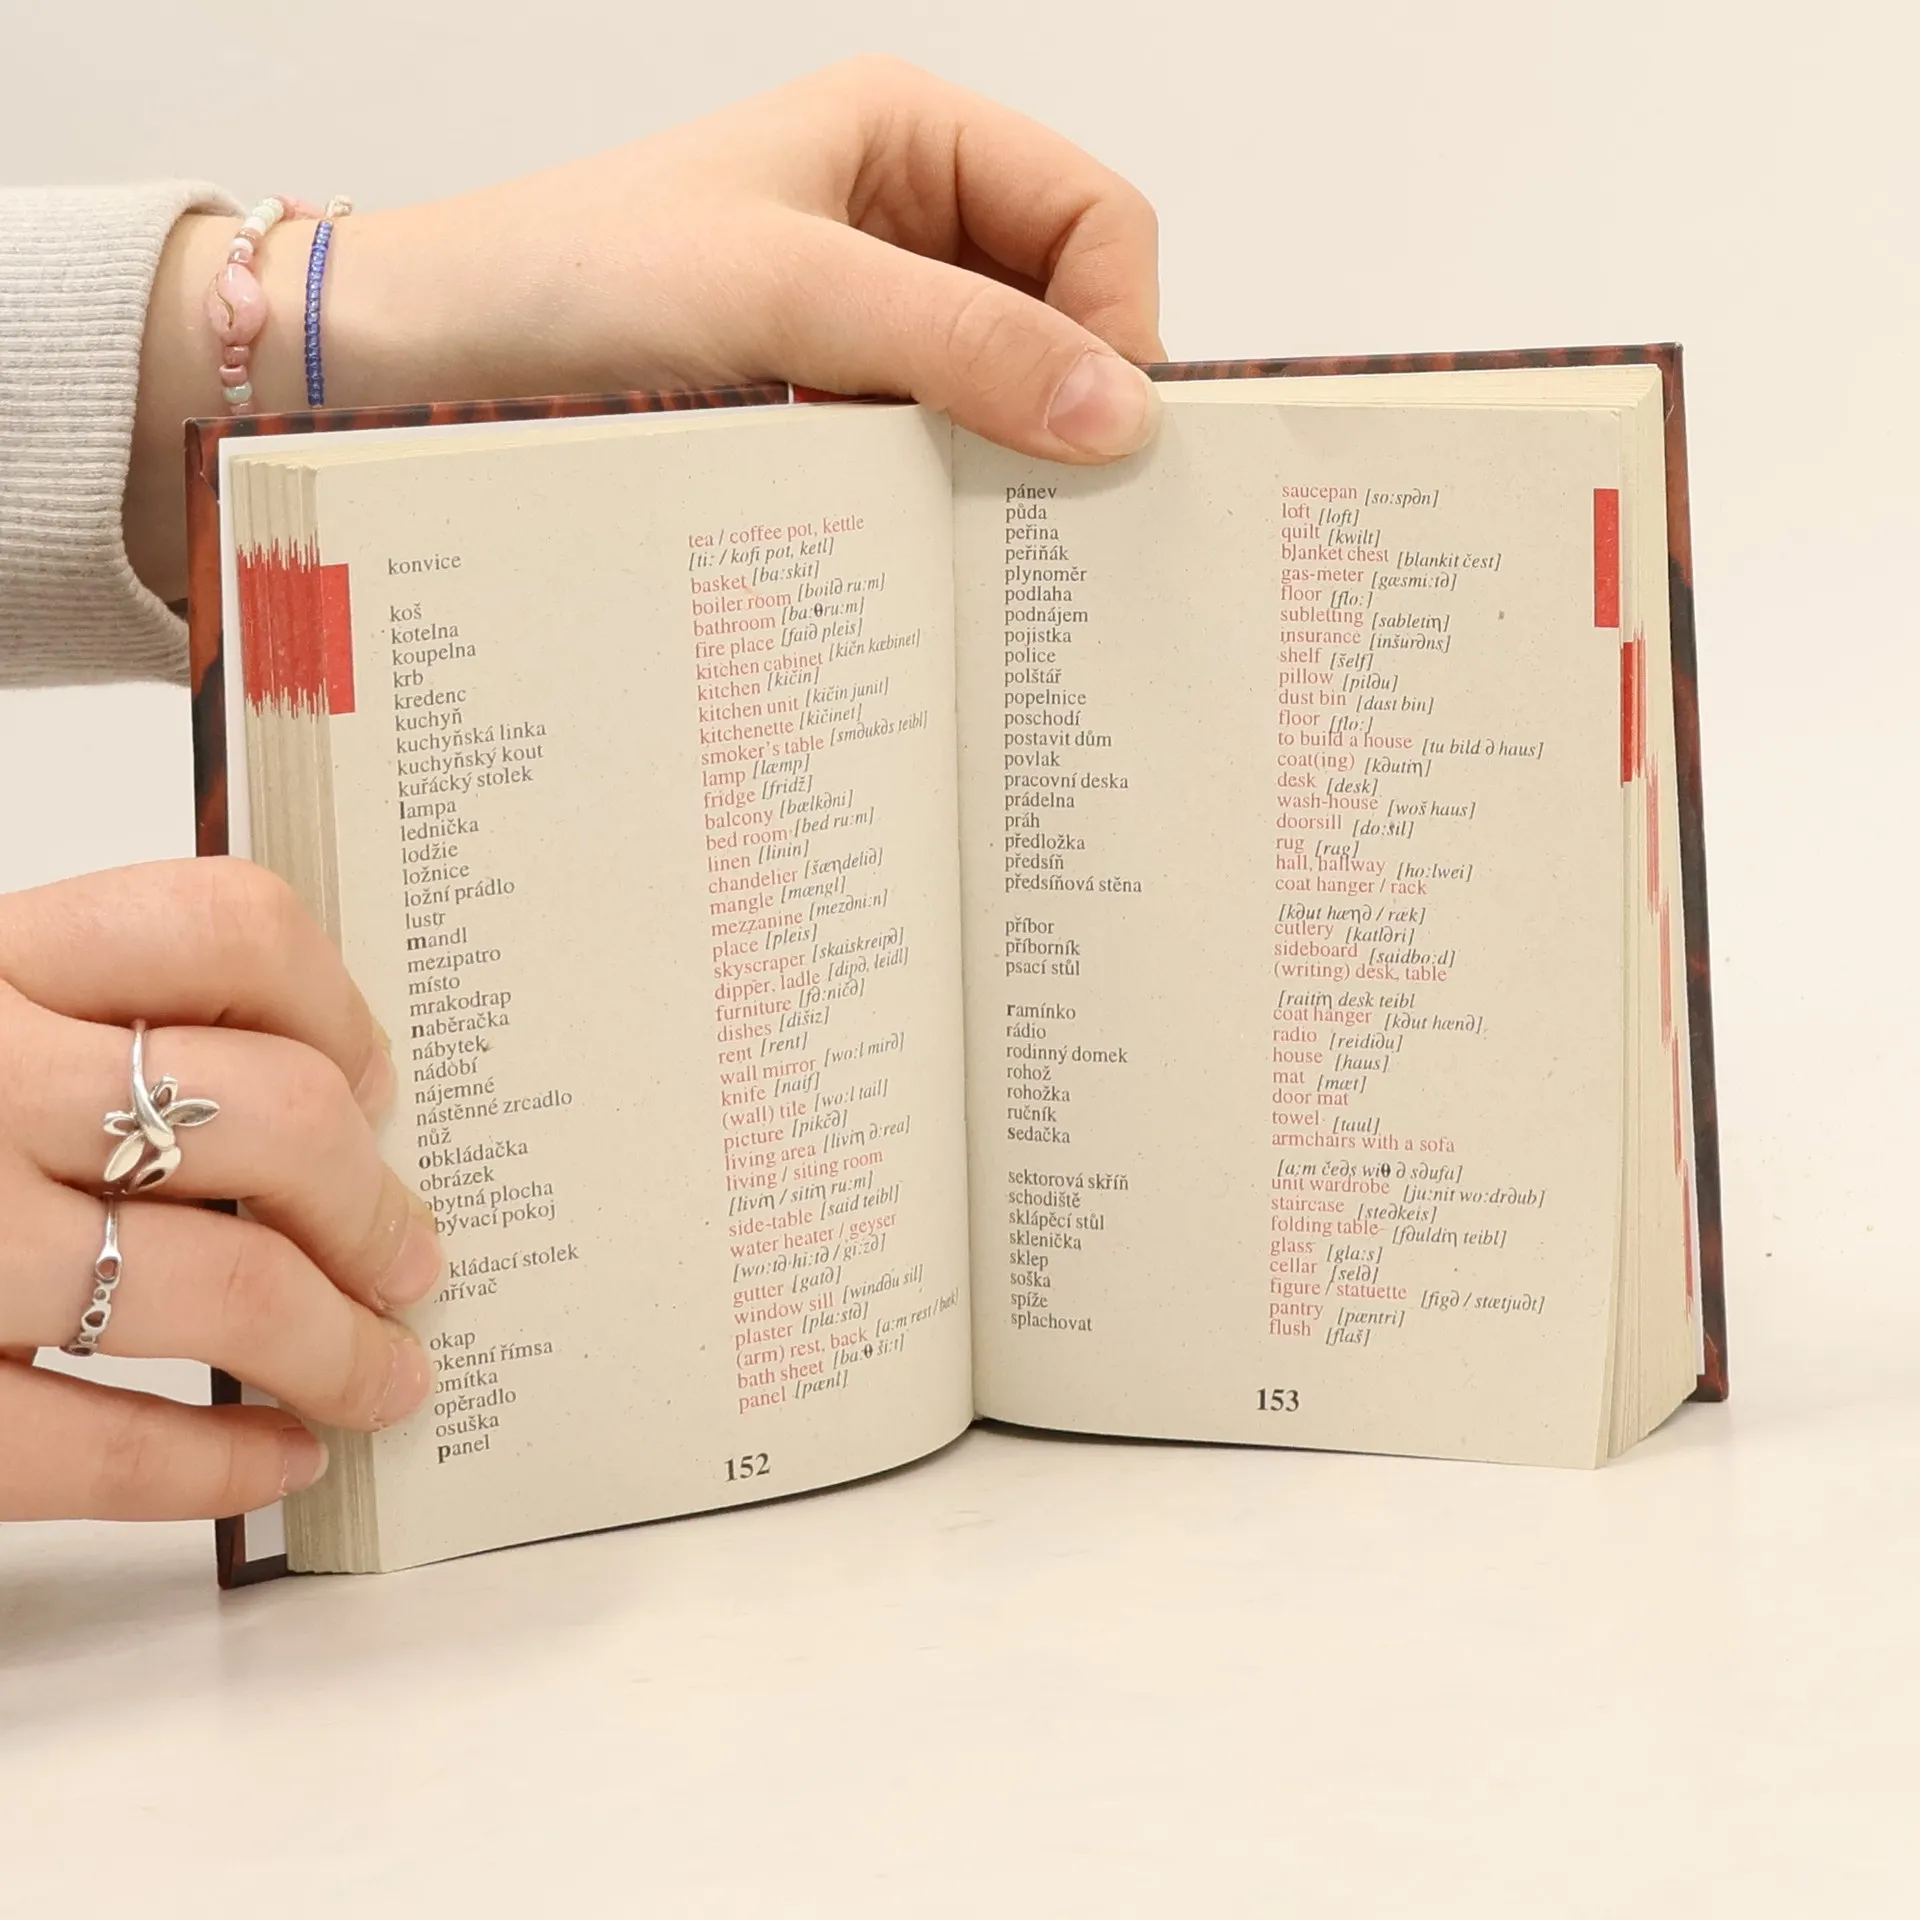 konvice tea / coffee pot, kettle
[ti: / kofi pot, ketl]
koš basket [ba:skit]
kotelna boiler room [boilə ru:m]
koupelna bathroom [ba:θru:m]
krb fire place [faiə pleis]
kredenc kitchen cabinet [kičn kæbinet]
kuchyň kitchen [kičin]
kuchyňská linka kitchen unit [kičin junit]
kuchyňský kout kitchenette [kičinet]
kuřácký stolek smoker's table [sməukəs teibl]
lampa lamp [læmp]
lednička fridge [fridž]
lodžie balcony [bælkəni]
ložnice bed room [bed ru:m]
ložní prádlo linen [linin]
lustr chandelier [šæŋdeliə]
mandl mangle [mæŋgl]
mezipatro mezzanine [mezəni:n]
místo place [pleis]
mrakodrap skyscraper [skaiskreipə]
naběračka dipper, ladle [dipə, leidl]
nábytek furniture [fə:ničə]
nádobí dishes [dišiz]
nájemné rent [rent]
nástěnné zrcadlo wall mirror [wo:l mirə]
nůž knife [naif]
obkládačka (wall) tile [wo:l tail]
obrázek picture [pikčə]
obytná plocha living area [liviŋ ə:rea]
bývací pokoj living / siting room
[liviŋ / sitiŋ ru:m]
kládací stolek side-table [said teibl]
hřívač water heater / geyser
[wo:tə hi:tə / gi:zə]
okap gutter [gatə]
okenní římsa window sill [windəu sil]
omítka plaster [pla:stə]
opěradlo (arm) rest, back [a:m rest / bæk]
osuška bath sheet [ba:θ ši:t]
panel panel [pænl]
152
pánev saucepan [so:spən]
půda loft [loft]
peřina quilt [kwilt]
peřiňák blanket chest [blankit čest]
plynoměr gas-meter [gæsmi:tə]
podlaha floor [flo:]
podnájem subletting [sabletiŋ]
pojistka insurance [inšurəns]
police shelf [šelf]
polštář pillow [piləu]
popelnice dust bin [dast bin]
poschodí floor [flo:]
postavit dům to build a house [tu bild ə haus]
povlak coat(ing) [kəutiŋ]
pracovní deska desk [desk]
prádelna wash-house [woš haus]
práh doorsill [do:sil]
předložka rug [rag]
předsíň hall, hallway [ho:lwei]
předsíňová stěna coat hanger / rack
[kəut hæŋə / ræk]
příbor cutlery [katləri]
příborník sideboard [saidbo:d]
psací stůl (writing) desk, table
[raitiŋ desk teibl
ramínko coat hanger [kəut hæŋə]
rádio radio [reidiəu]
rodinný domek house [haus]
rohož mat [mæt]
rohožka door mat
ručník towel [taul]
sedačka armchairs with a sofa
[a:m čeəs wiθ ə səufa]
sektorová skříň unit wardrobe [ju:nit wo:drəub]
schodiště staircase [steəkeis]
sklápěcí stůl folding table [fəuldiŋ teibl]
sklenička glass [gla:s]
sklep cellar [selə]
soška figure / statuette [figə / stætjuət]
spíže pantry [pæntri]
splachovat flush [flaš]
153